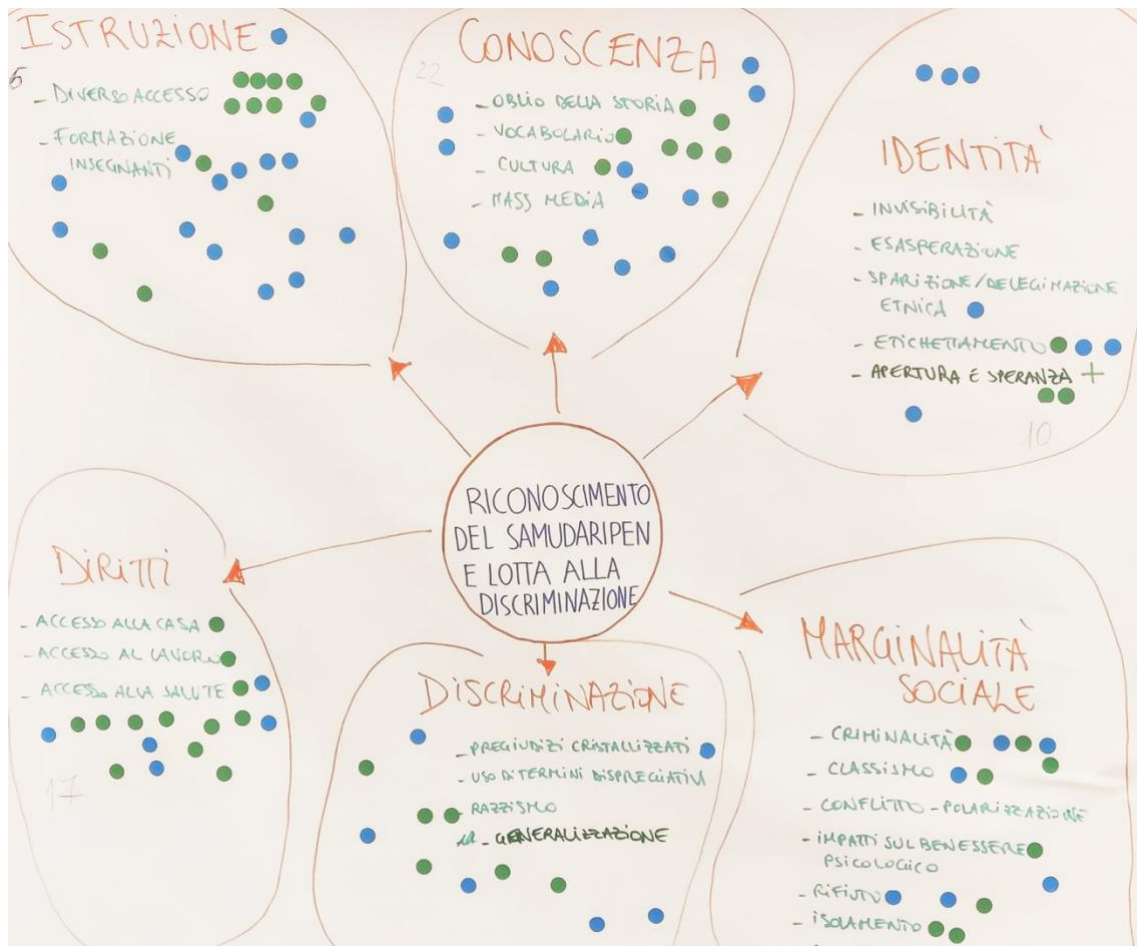 ISTRUZIONE
5
- DIVERSO ACCESSO
- FORMAZIONE
INSEGNANTI
CONOSCENZA
22
- OBLIO DELLA STORIA
- VOCABOLARIO
- CULTURA
- MASS MEDIA
IDENTITÀ
- INVISIBILITÀ
- ESASPERAZIONE
- SPARIZIONE/DELEGIMAZIONE
ETNICA
- ETICHETTAMENTO
- APERTURA E SPERANZA +
10
RICONOSCIMENTO
DEL SAMUDARIPEN
E LOTTA ALLA
DISCRIMINAZIONE
DIRITTI
- ACCESSO ALLA CASA
- ACCESSO AL LAVORO
- ACCESSO ALLA SALUTE
17
DISCRIMINAZIONE
- PREGIUDIZI CRISTALLIZZATI
- USO DI TERMINI DISPREGIATIVI
- RAZZISMO
- GENERALIZZAZIONE
MARGINALITÀ
SOCIALE
- CRIMINALITÀ
- CLASSISMO
- CONFLITTO - POLARIZZAZIONE
- IMPATTI SUL BENESSERE
PSICOLOGICO
- RIFIUTO
- ISOLAMENTO